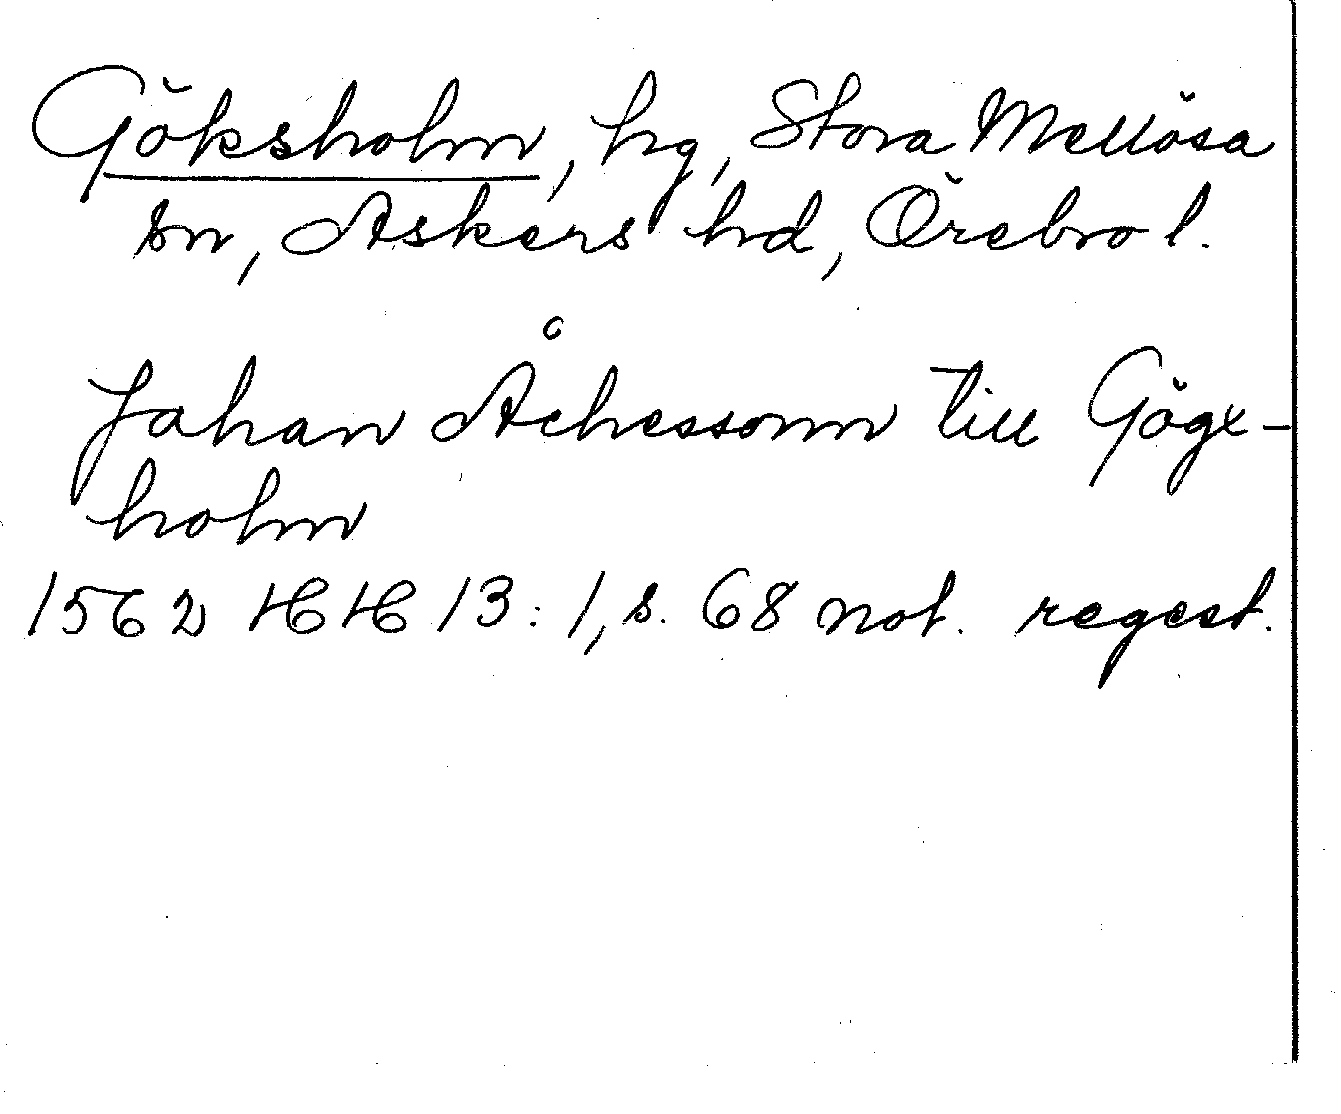 Göksholm, hg, Stora Mellösa
sn, Askers hd, Örebro l.
Johan Åchessonn till Gögx-
holm
1562 HH 13:1, s. 68 not. regest.